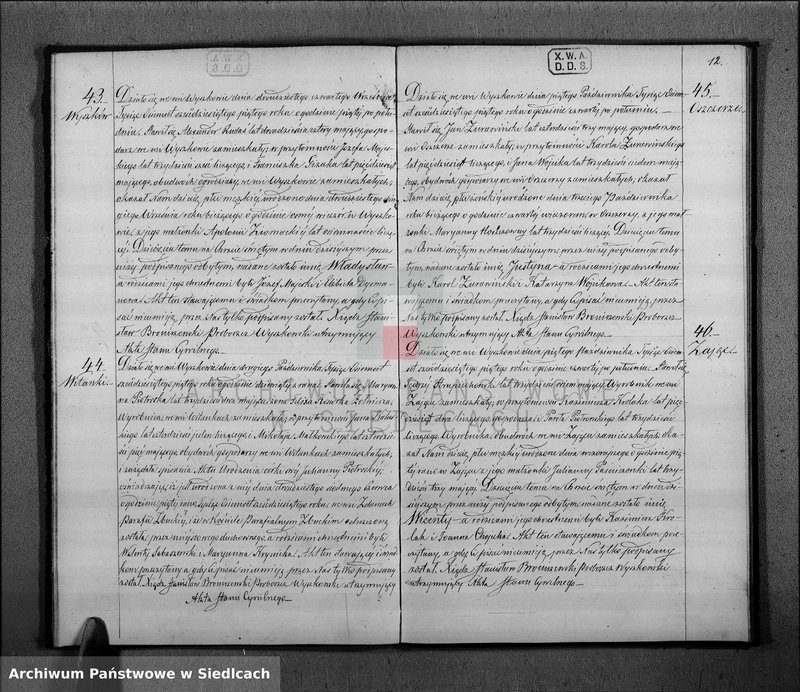 X. W. A.
D. D. S.
12.
43.
Wyszków
Działo się we wsi Wyszkowie dnia dwudziestego czwartego Września
Tysiąc Ośmset sześćdziesiątego piątego roku o godzinie piątej po połu-
dniu. Stawił się Alexander Kuraś lat dwadzieścia cztery mający gospo-
darz we wsi Wyszkowie zamieszkały, w przytomności Józefa Majc-
kiego lat trzydzieści sześć liczącego i Franciszka lat pięćdziesiąt
mającego, obudwóch ogrodników, we wsi Wyszkowie zamieszkałych,
okazał Nam dziecię płci męzkiej urodzone dnia dwudziestego dru-
giego Września roku bieżącego o godzinie ósmej wieczór w Wyszko-
wie, z jego małżonki Apolonii lat ośmnaście liczą-
cej. Dziecięciu temu na Chrzcie świętym w dniu dzisiejszym przez
niżej podpisanego odbytym, nadane zostało imię Władysław
a rodzicami jego chrzestnemi byli Józef Majcki i Elżbieta
Akt ten stawającemu i świadkom przeczytany, a gdy ci pi-
sać nie umieją, przez Nas tylko podpisany został. Ksiądz Stani-
sław Broniszewski Proboszcz Wyszkowski utrzymujący
Akta Stanu Cywilnego.
44.
Witanki
Działo się we wsi Wyszkowie dnia drugiego Października Tysiąc Ośmset
sześćdziesiątego piątego roku o godzinie dziesiątej z rana. Stawiła się Maryan-
na Piotrocka lat trzydzieści dwa mająca, żona Feliksa Żołnierza,
Wyrobnica, we wsi Witankach zamieszkała, w przytomności Jana
lat czterdzieści jeden liczącego i Mikołaja Małkowskiego lat czterdzie-
ści pięć mającego obydwóch gospodarzy we wsi Witankach zamieszkałych,
i zażądała spisania Aktu Urodzenia córki swej Julianny Piotrockiej;
oświadczając iż ta urodzona z niej dnia dwudziestego siódmego Czerwca
o godzinie piątej rano, Tysiąc Ośmset sześćdziesiątego roku, we wsi
Parafii Zbuckiej, i że w Kościele Parafialnym Zbuckim ochrzczoną
została przez miejscowego duchownego, a rodzicami chrzestnemi byli
Walenty i Maryanna Krynicka. Akt ten stawającej i świad-
kom przeczytany, a gdy ci pisać nie umieją, przez Nas tylko podpisany
został. Ksiądz Stanisław Broniszewski Proboszcz Wyszkowski utrzymujący
Akta Stanu Cywilnego.
45.
Oszczerze
Działo się we wsi Wyszkowie dnia piątego Października Tysiąc Ośm-
set sześćdziesiątego piątego roku o godzinie czwartej po południu.
Stawił się Jan Żurawiński lat czterdzieści trzy mający, gospodarz we
wsi Oszczerze zamieszkały, w przytomności Karola Żurawińskiego
lat pięćdziesiąt liczącego, i Jana Wójcika lat trzydzieści siedem mają-
cego, obydwóch gospodarzy we wsi Oszczerzy zamieszkałych, okazał
Nam dziecię płci żeńskiej urodzone dnia trzeciego Października
roku bieżącego o godzinie czwartej wieczorem w Oszczerzy, z jego mał-
żonki Maryanny lat trzydzieści liczącej. Dziecięciu temu
na Chrzcie świętym w dniu dzisiejszym, przez niżej podpisanego odby-
tym, nadane zostało imię Justyna a rodzicami jego chrzestnemi
byli Karol Żurawiński i Katarzyna Wójcikowa. Akt ten sta-
wającemu i świadkom przeczytany, a gdy ci pisać nie umieją, przez
Nas tylko podpisany został. Ksiądz Stanisław Broniszewski Proboszcz
Wyszkowski utrzymujący Akta Stanu Cywilnego.
46.
Zające
Działo się we wsi Wyszkowie dnia piątego Października Tysiąc Ośm-
set sześćdziesiątego piątego roku o godzinie czwartej po południu. Stawił się
Jędrzej lat trzydzieści ośm mający Wyrobnik we wsi
Zające zamieszkały, w przytomności Kazimierza Krolaka lat pięć-
dziesiąt dwa liczącego gospodarza i Piotra Piotrowskiego lat trzydzieści
liczącego Wyrobnika Obudwóch we wsi Zające zamieszkałych, oka-
zał Nam dziecię płci męzkiej urodzone dnia wczorajszego o godzinie pią-
tej rano w Zające z jego małżonki Julianny lat trzy-
dzieści trzy mającej. Dziecięciu temu na Chrzcie świętym w dniu dzi-
siejszym przez niżej podpisanego odbytym nadane zostało imię
Wicenty a rodzicami jego chrzestnemi byli Kazimierz Kro-
lak i Joanna. Akt ten stawającemu i świadkom prze-
czytany, a gdy ci pisać nie umieją, przez Nas tylko podpisany
został. Ksiądz Stanisław Broniszewski Proboszcz Wyszkowski
utrzymujący Akta Stanu Cywilnego.
Archiwum Państwowe w Siedlcach